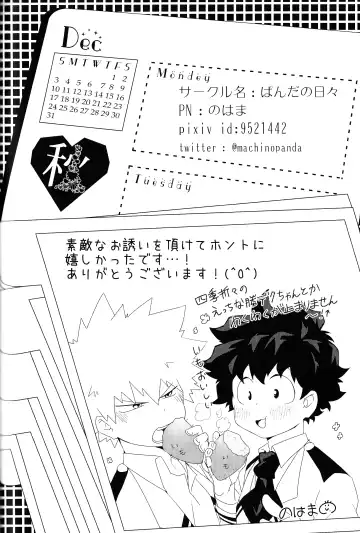 Dec
S M T W T F S
1 2
3 4 5 6 7 8 9
10 11 12 13 14 15 16
17 18 19 20 21 22 23
24 25 26 27 28 29 30
31
Monday
サークル名：ぱんだの日々
PN：のはま
pixiv id:9521442
twitter：@machinopanda
秋
Tuesday
素敵なお誘いを頂けてホントに
嬉しかったです…！
ありがとうございます！(^O^)
四季折々の
えっちな勝デクちゃんとか
わくわくが止まりません
いも
いも
のはま